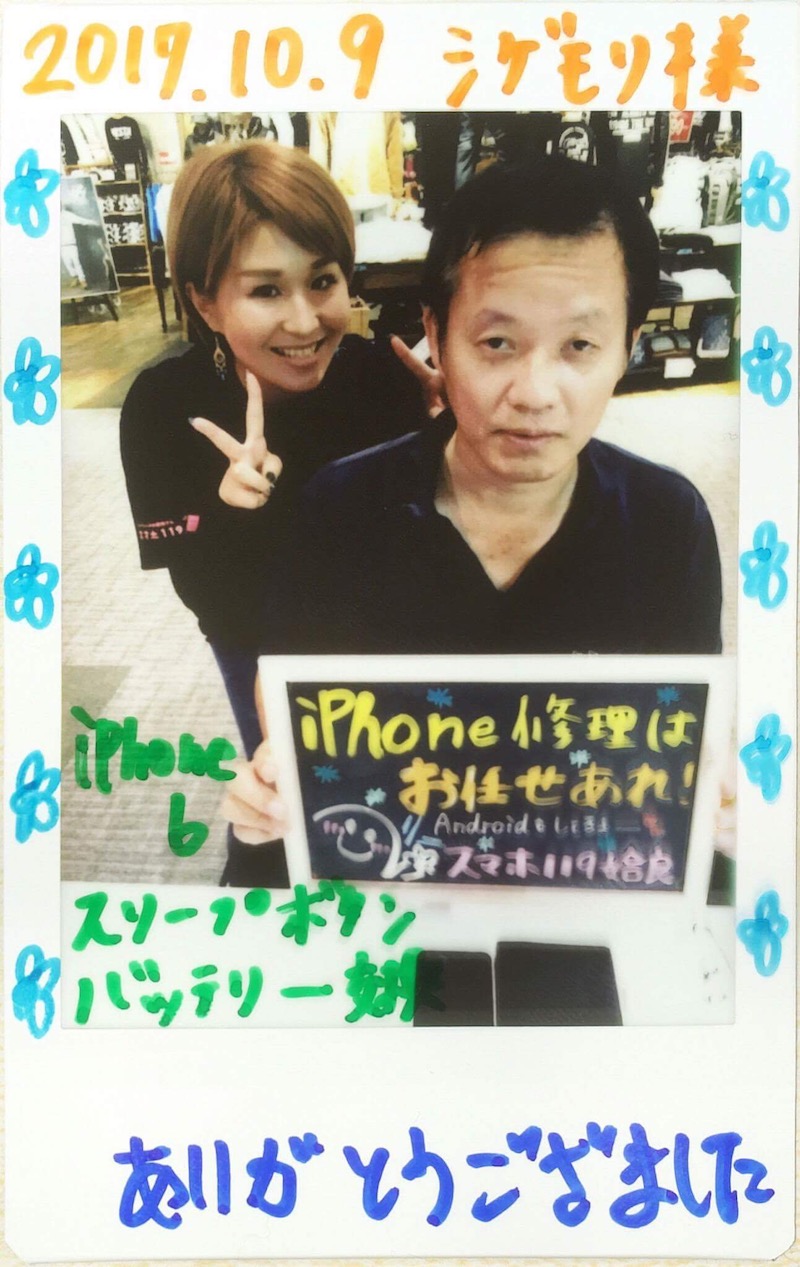 2017.10.9 シゲモリ様
スマホ119
iPhone修理は
お任せあれ!
Androidもしてます
スマホ119姶良
iPhone
6
スリープボタン
バッテリー交換
ありがとうございました